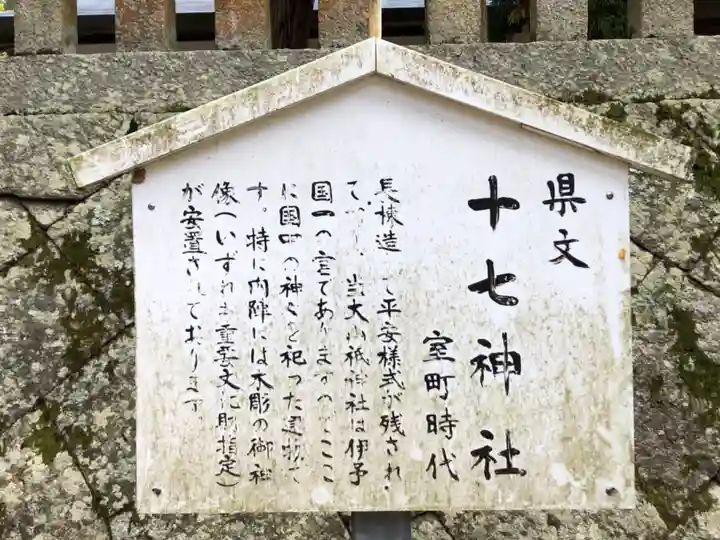 県文
十七神社
室町時代
長棟造 で平安様式が残され
て 、当大山祇神社は伊予
国一の宮でありますのでここ
に国中の神々を祀った建物で
す。特に内陣には木彫の御神
像(いずれも重要文化財指定)
が安置されております。